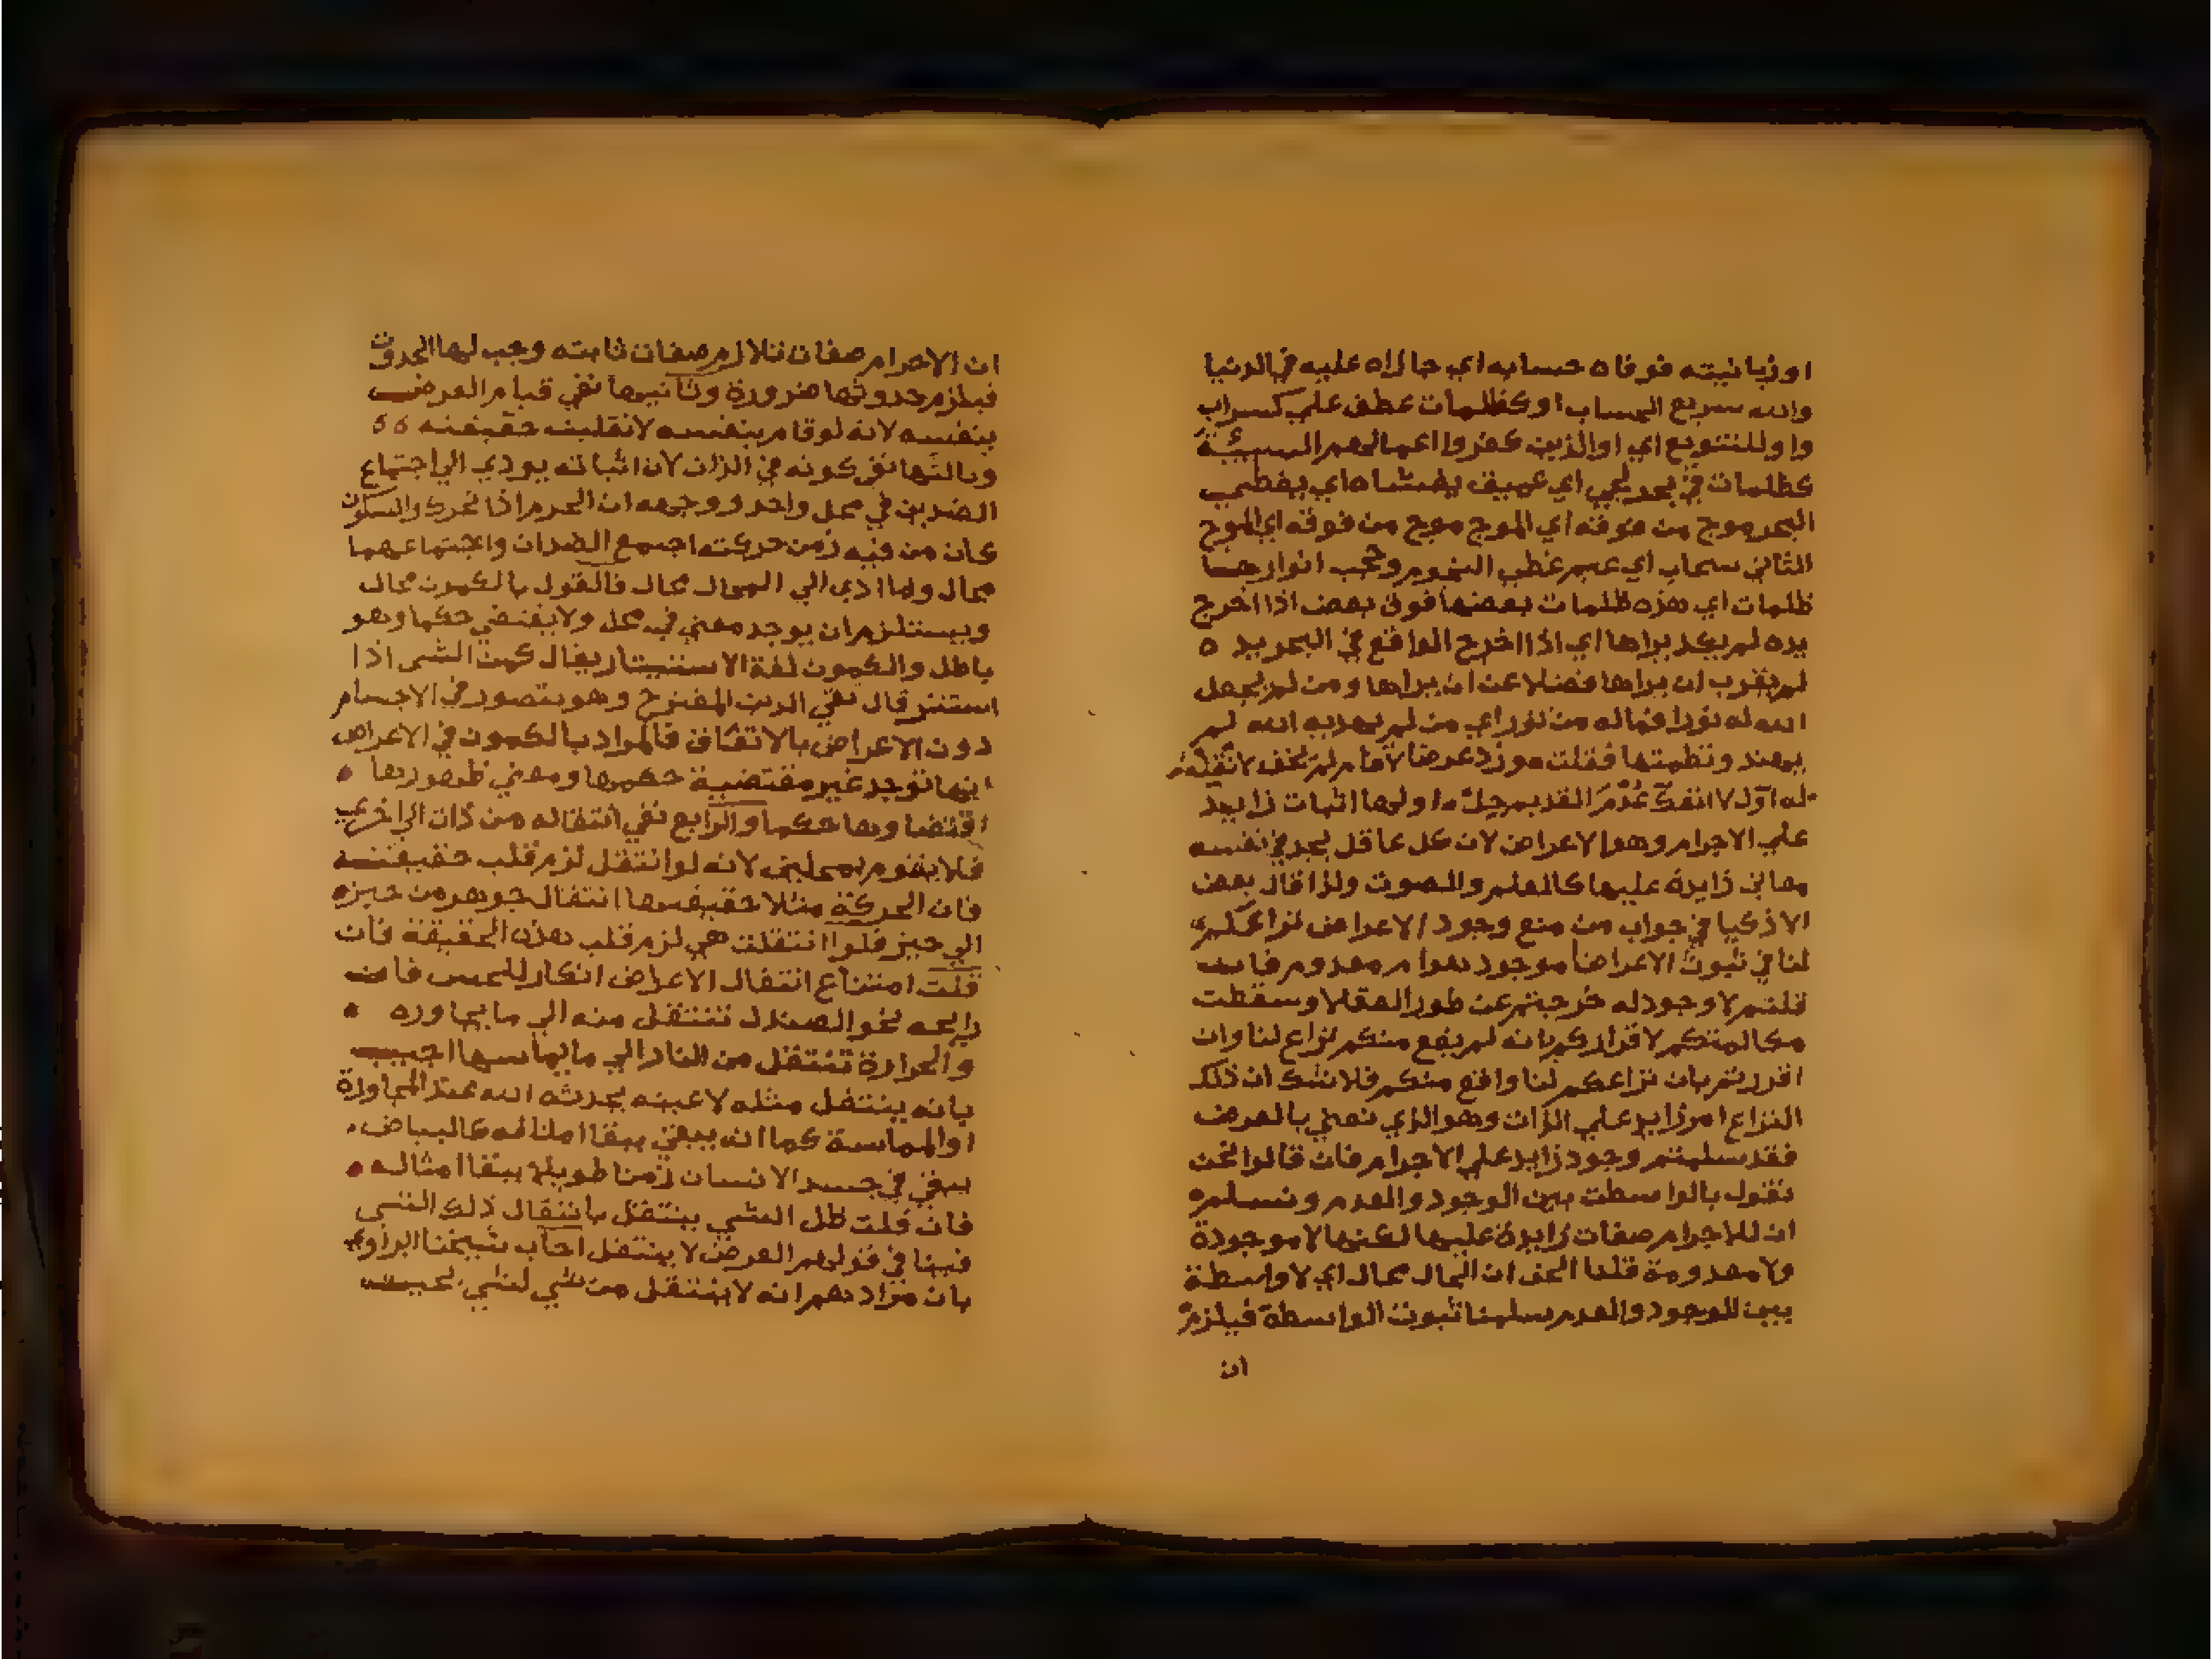 او زبانيته فوفاه حسابه اي جازاه عليه في الدنيا
والله سريع الحساب او كظلمات عطف علي كسراب
واو للتنويع اي اوالذين كفروا اعمالهم السيئة
كظلمات في بحر لجي اي عميق يغشاه اي يغطي
البحر موج من فوقه اي الموج موج من فوقه اي الموج
الثاني سحاب اي غيم غطي النجوم وحجب انوارها
ظلمات اي هذه ظلمات بعضها فوق بعض اذا اخرج
يده لم يكد يراها اي اذا اخرج الواقع في البحر يده
لم يقرب ان يراها فضلا عن ان يراها ومن لم يجعل
الله له نورا فماله من نور اي من لم يهديه الله لم
يهتد ونظمتها فقلت هو زد عرضا لاقام لم يخف لا نقلة
له اول لا انفك عدم القديم جل اولها اثبات زايد
علي الاجرام وهو الاعراض لان كل عاقل يجد في نفسه
معاني زايدة عليها كالعلم والصوت ولذا قال بعض
الاذكيا في جواب من منع وجود الاعراض نزاعكم
لنا في ثبوت الاعراض اموجود هو ام معدوم فان
قلتم لا وجود له خرجتم عن طور العقلا وسقطت
مكالمتكم لاقراركم بانه لم يقع منكم نزاع لنا وان
اقررتم بان نزاعكم لنا واقع منكم فلا شك ان ذلك
النزاع امر زايد علي الذات وهو الذي نعني بالعرض
فقد سلمتم وجود زايد علي الاجرام فان قالوا نحن
نقول بالواسطت بين الوجود والعدم ونسلم
ان للاجرام صفات زايدة عليها لكنها لا موجودة
ولا معدومة قلنا الحق ان الحال محال اي لا واسطة
بين الوجود والعدم سلمنا ثبوت الواسطة فيلزم
ان
ان الاجرام صفات تلازم صفات ثابته وجب لها الحدوث
فيلزم حدوثها ضرورة وثانيها نفي قيام العرض
بنفسه لانه لو قام بنفسه لانقلبت حقيقته
وثالثها نفي كونه في الذات لان اثباته يودي الي اجتماع
الضدين في محل واحد ووجهه ان الجرم اذا تحرك والسكون
كان من فيه زمن حركته اجتمع الضدان واجتماعهما
محال وما ادي الي المحال محال فالقول بالكمون محال
ويستلزم ان يوجد معني في محل ولا يقتضي حكما وهو
باطل والكمون لغة الاستتار يقال كمن الشي اذا
استتر قال تقي الدين المقترح وهو يتصور في الاجسام
دون الاعراض بالاتفاق فالمراد بالكمون في الاعراض
انها توجد غير مقتضية حكمها ومعني ظهورها
اقتضاوها حكما والرابع نفي انتقاله من ذات الي اخري
فلا يقوم بمحلين لانه لو انتقل لزم قلب حقيقته
فان الحركة مثلا حقيقتها انتقال جوهر من حيز
الي حيز فلو انتقلت هي لزم قلب هذه الحقيقة فان
قلت امتناع انتقال الاعراض انكار للحس فان
رايحه نحو الصندل تنتقل منه الي ما يجاوره
والحرارة تنتقل من النار الي ما يماسها اجيب
بانه ينتقل مثله لا عينه يحدثه الله عند المجاورة
او المماسة كما انه يبقي ببقا امثاله كالبياض
يبقي في جسد الانسان زمنا طويلا ببقا امثاله
فان قلت ظل الشي ينتقل بانتقال ذلك الشي
فينافي قولهم العرض لا ينتقل اجاب شيخنا البراوي
بان مرادهم انه لا ينتقل من شي لشي بحيث